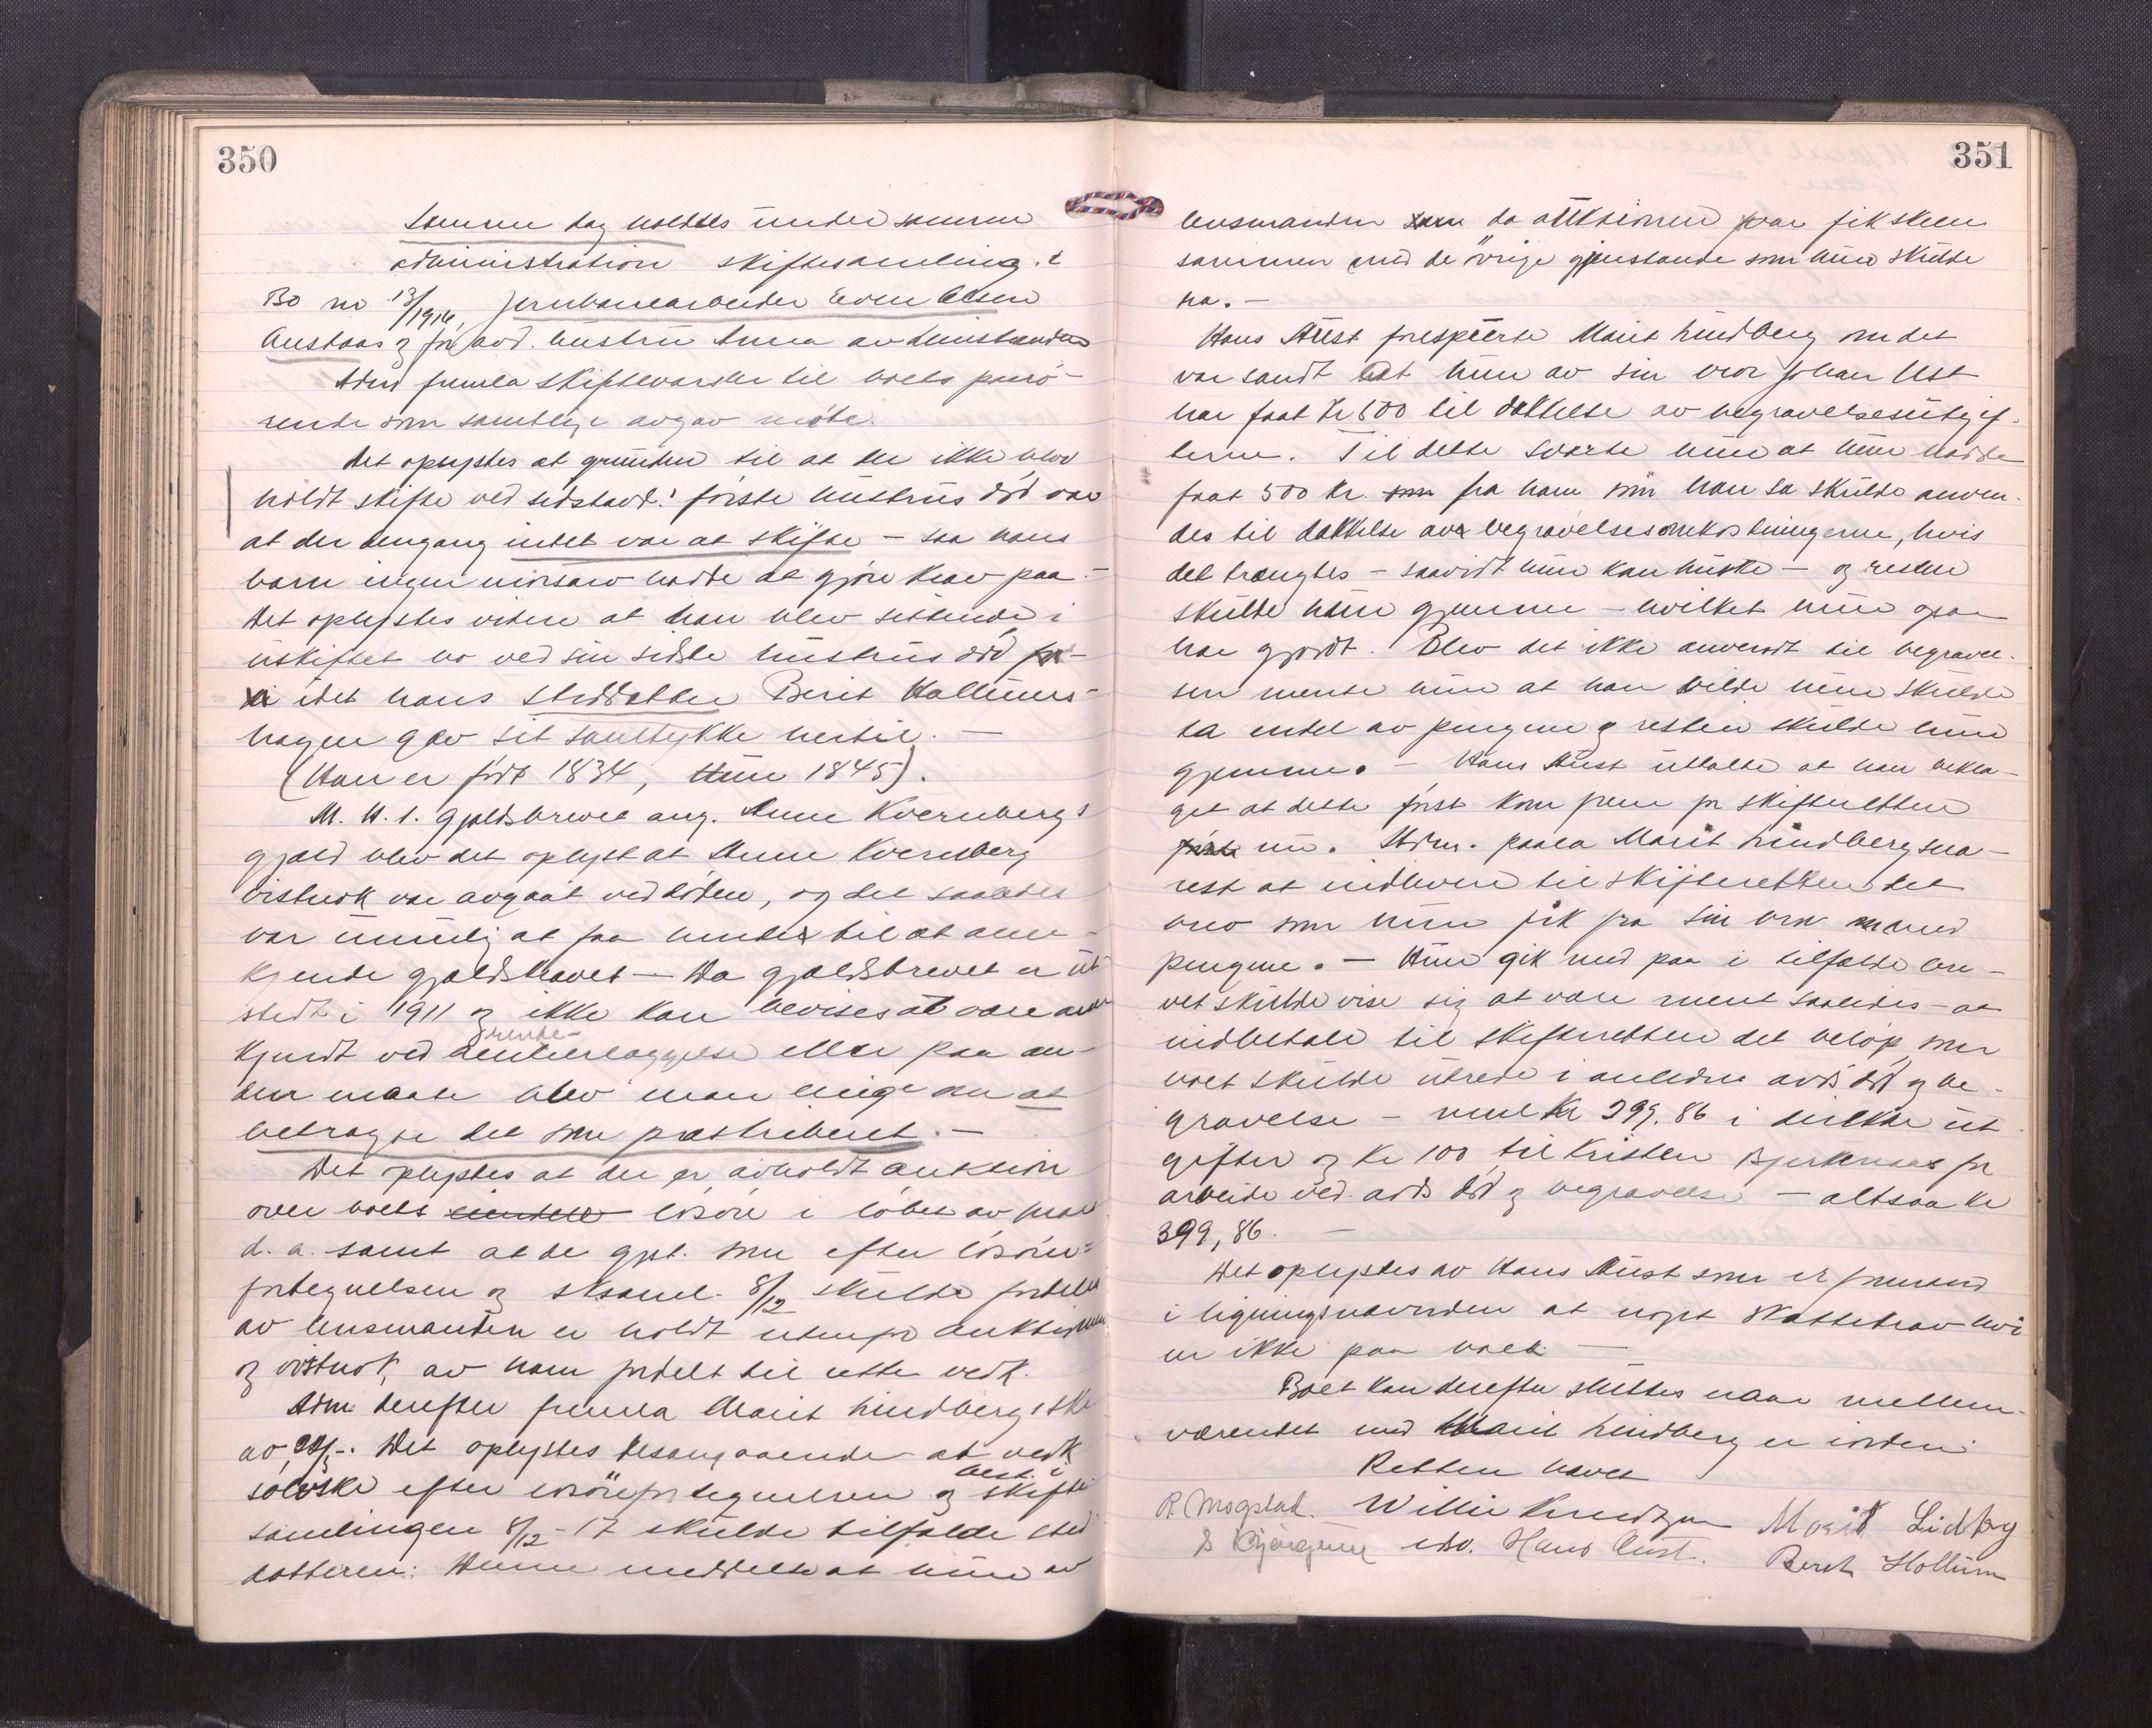 350
Samme dag holdtes under samme
administration skiftesamling i
Bo no 13/1916, jernbanearbeider Even Olsen
Austaas og før avd. hustru Anna av
Adm fremla skiftevarsler til boets paarø-
rende som samtlige avgav møte.
Det oplystes at grunden til at der ikke blev
holdt skifte ved sidstavd.s første hustrus død var
at der dengang intet var at skifte – saa hans
barn ingen morsarv hadde at gjøre krav paa.–
Det oplystes videre at han blev sittende i
uskiftet bo ved sin sidste hustrus død
idet hans steddatter Berit Hollums-
hagen gav sit samtykke hertil. –
(Han er født 1834, Hun 1845).
M. H. t. gjeldsbrevet ang. Anne Kvernbergs
gjæld blev det oplyst at Anne Kvernberg
vistnok var avgaat ved døden, og det saaledes
var umulig at faa hende til at aner-
kjende gjældskravet – Da gjældsbrevet er ut-
stedt i 1911 og ikke kan bevises at være aner
kjendt ved rentebetaling eller paa an-
den maate blev man enige om at
betragte det som præskriberet. –
Det oplystes at der er avholdt auktion
over boets løsøre i løbet av mai
d. a. samt at de gjst. som efter løsøre-
fortegnelsen og sksaml. 8/12 skulde fordeles
av lensmanden er holdt utenfor auktionen
og vistnok av ham fordelt til rette vedk.
Adm derefter fremla Marit Lindbergs skr
av 29/-. Det oplystes desangaaende at vedk
sølvske efter løsørefortegnelsen og best. i skifte
samlingen 8/12 – 17 skulde tilfalde sted
datteren. Denne meddelte at hun av
351
lensmanden da auktionen var fik skeen
sammen med de øvrige gjenstande som hun skulde
ha. –
Hans Aust forespurte Marit Lindberg om det
var sandt at hun av sin bror Johan Ust
har faat kr 500 til dækkelse av begravelsesutgif-
terne. Til dette svarte hun at hun hadde
faat 500 kr. fra ham som han sa skulde anven-
des til dækkelse av begravelsesomkostningerne, hvis
det trængtes – saavidt hun kan huske – og resten
skulde hun gjemme – hvilket hun ogsaa
har gjordt. Blev det ikke anvendt til begravel-
sen mente hun at han vilde hun skulde
ta endel av pengene og resten skulde hun
gjemme. – Hans Aust uttalte at han bekla-
get at dette først kom frem for skifteretten
nu. Adm. paala Marit Lindberg sna-
rest at indlevere til skifteretten det
brev som hun fik fra sin bror med
pengene. – Hun gik med paa i tilfælde bre-
vet skulde vise sig at være ment saaledes – at
indbetale til skifteretten det beløp som
boet skulde utrede i anledn avd's død og be-
gravelse – nml kr 299.86 i direkte ut-
gifter og kr 100 til Kristen Bjerkenaas for
arbeide ved avds død og begravelse – altsaa kr
399,86. –
Det oplystes av Hans Aust som er formand
i ligningsnævnden at noget skattekrav hvi
ler ikke paa boet. –
Boet kan derefter sluttes naar mellem-
værendet med Marit Lindberg er i orden.
Retten hævet
R. Mogstad. Willie Knudtzon Marit Lidbrg
edv. Hans Aust. Berit Hollum